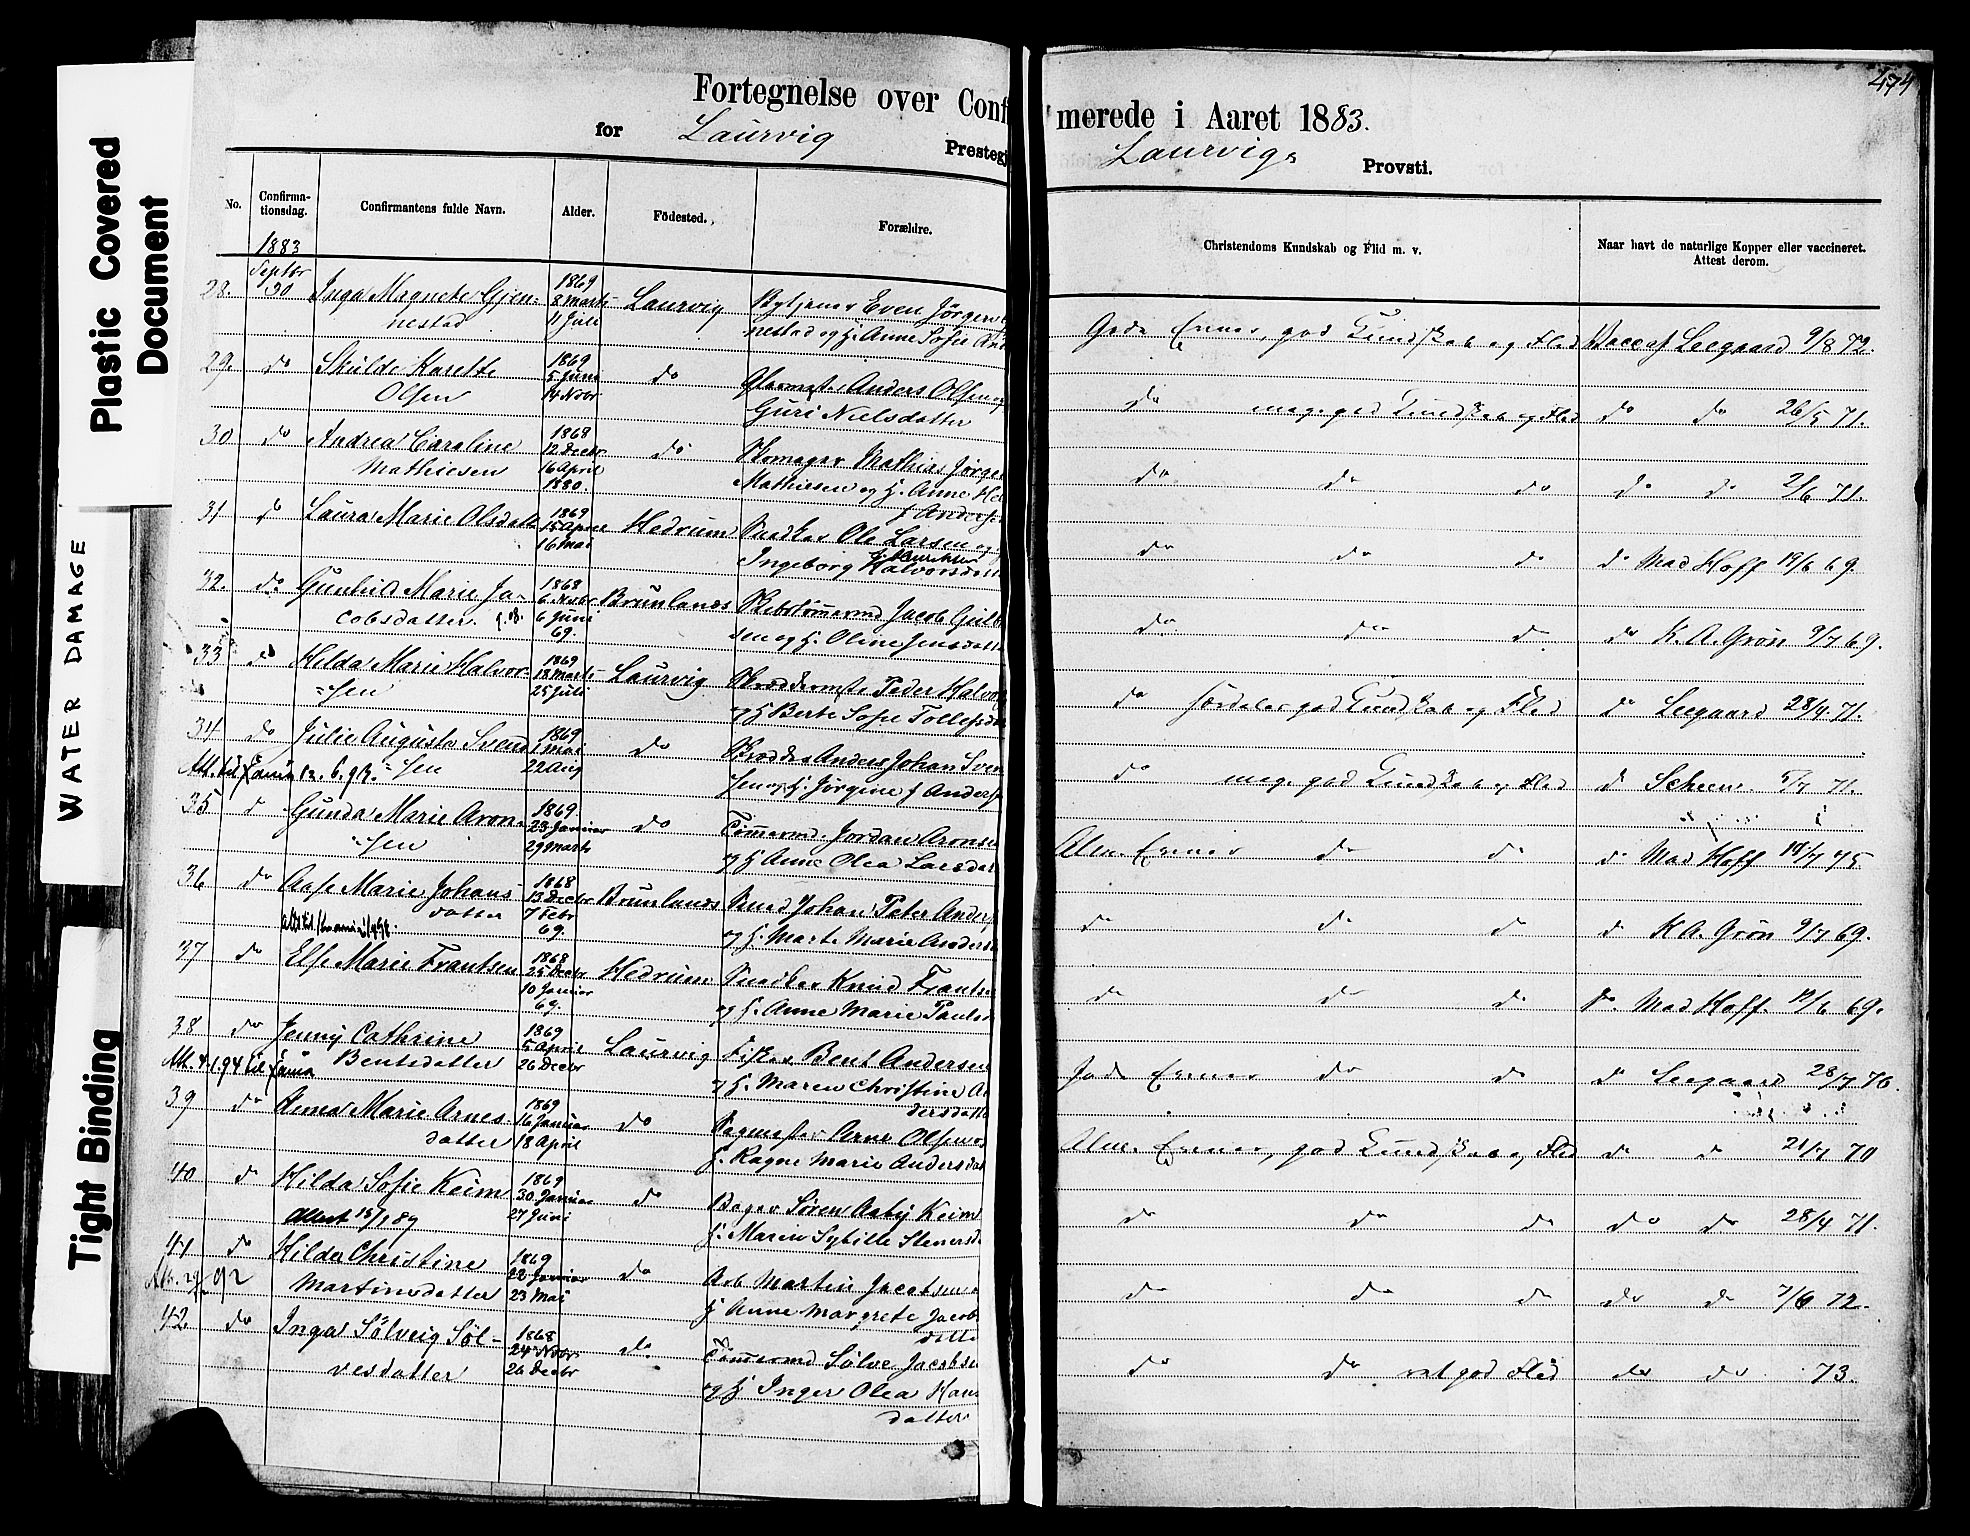 Plastic Covered
Document
WATER DAMAGE
Tight Binding
474
Fortegnelse over Conf
merede i Aaret 1883.
for Laurvig Prestegj
Laurvigs Provsti.
No. Confirma-tionsdag. Confirmantens fulde Navn. Alder. Födested. Forældre.
Christendoms Kundskab og Flid m. v. Naar havt de naturlige Kopper eller vaccineret. Attest derom.
1883
Septbr 1869
28. 30 Inga Magnete Gjen- 8 Marts Laurvig Even Jörgen
nestad 11 Juli nestad og H. Anne Sofie And
Gode Evner, god Kundskab og Flid Vacc af Leegaard 9/8 72.
1869
29. do Skulde Karette 5 Juni do Anders Olsen og
Olsen 14 Novbr Guri Nielsdatter
do meget god Kundskab og Flid do do 26/5 71.
1868
30 do Andrea Caroline 12 Decbr do Skomager Mathias Jörgen
Mathiesen 16 April Mathiesen og H. Anne He
1880. f Anders
do do do do do 2/6 71.
1869
31 do Laura Marie Olsdatt 15 April Hedrum Snedker Ole Larsen og
16 Mai Ingeborg Halvorsdatt
do do do do Mad Hoff 19/6 69.
1868
32. do Gunhild Marie Ja- 6 Novbr Brunlanes Jacob Gulb
cobsdatter 6 Juni sen og H. Oline Jensdatt
69.
do do do do K. A. Grön 9/7 69.
1869
33 do Hilda Marie Halvor- 18 Marts Laurvig Peder Halvor
=sen 25 Juli og H Berte Sofie Tollefsd
do god Kundskab og Flid do Leegaard 28/4 71.
1869
34 do Julie Augusta Svend 1 Mai do Anders Johan Sven
=sen 22 Aug sen og H. Jörgine f Anders
do meget god Kundskab og Flid do Scheen 5/7 71.
1869
35 do Gunda Marie Aron- 23 Januar do Tömmermd. Jordan Aronsen
=sen 29 Marts og H Anne Olea Larsdat
Alm. Evner do do do Mad Hoff 19/7 75
1868
36 do Aase Marie Johans- 13 Decbr Brunlanes Johan Peter Anders
datter 7 Febr og H. Marte Marie Anders
69.
do do do do K A. Grön 9/7 69.
1868
37 do Else Marie Frantsen 25 Decbr Hedrum Snedker Knud Frants
10 Januar og H. Anne Marie Pauls
69.
do do do do Mad Hoff. 19/6 69.
1869
38 do Jenny Cathrine 5 April Laurvig Fisker Bent Andersen
Att. 4.1.94 til Bentsdatter 26 Decbr og H. Maren Christine An
dersdatt
Gode Evner do do do Leegaard 28/7 76.
1869
39 do Anna Marie Arnes 16 Januar do Arne Olsen og
datter 18 April H. Ragne Marie Andersdat
Alm. Evner, god Kundskab og Flid do do 21/7 70
1869
40 do Hilda Sofie Keim 30 Januar do Bager Sören Aaby Keim
Attest 15/1 89 27 Juni H. Maren Sybille Stenersd
do do do do do 28/4 71.
1869
41 do Hilda Christine 22 Januar do Arb Martin Jacobsen
92 Martinsdatter 23 Mai H Anne Margrete Jacobs
datter
do do do do do 7/6 72.
1868
42. do Inga Sölveig Söl- 24 Novbr do Tömmermd Sölve Jacobsen
vesdatter 26 Decbr og H Inger Olea Hans
datter
do do ret god Flid do do 73.